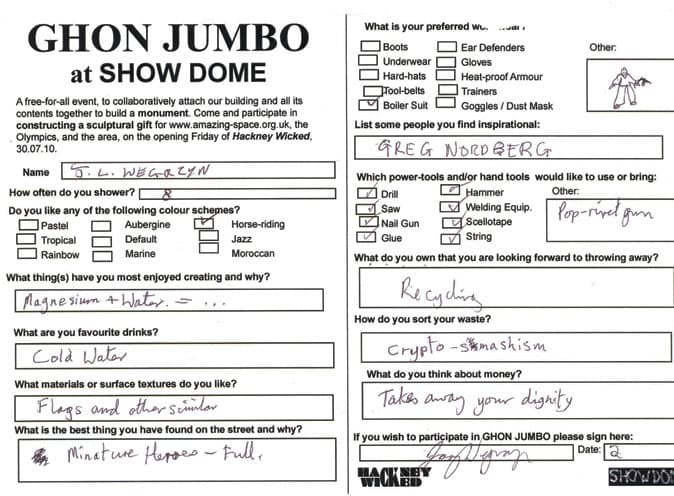 GHON JUMBO
at SHOW DOME
A free-for-all event, to collaboratively attach our building and all its
contents together to build a monument. Come and participate in
constructing a sculptural gift for www.amazing-space.org.uk, the
Olympics, and the area, on the opening Friday of Hackney Wicked,
30.07.10.
Name J. L. WEGRZYN
How often do you shower? 8
Do you like any of the following colour schemes?
Pastel Aubergine Horse-riding
Tropical Default Jazz
Rainbow Marine Moroccan
What thing(s) have you most enjoyed creating and why?
Magnesium + Water. = ...
What are you favourite drinks?
Cold Water
What materials or surface textures do you like?
Flags and other similar
What is the best thing you have found on the street and why?
Minature Heroes - Full.
What is your preferred
Boots Ear Defenders Other:
Underwear Gloves
Hard-hats Heat-proof Armour
Tool-belts Trainers
Boiler Suit Goggles / Dust Mask
List some people you find inspirational:
GREG NORDBERG
Which power-tools and/or hand tools would like to use or bring:
Drill Hammer Other:
Saw Welding Equip. Pop-rivet gun
Nail Gun Scellotape
Glue String
What do you own that you are looking forward to throwing away?
Recycling
How do you sort your waste?
Crypto-smashism
What do you think about money?
Takes away your dignity
If you wish to participate in GHON JUMBO please sign here:
Date: 2
HACKNEY
WICKED
SHOWDO